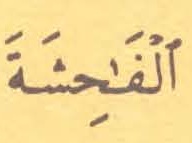 ٱلْفَٰحِشَةَ